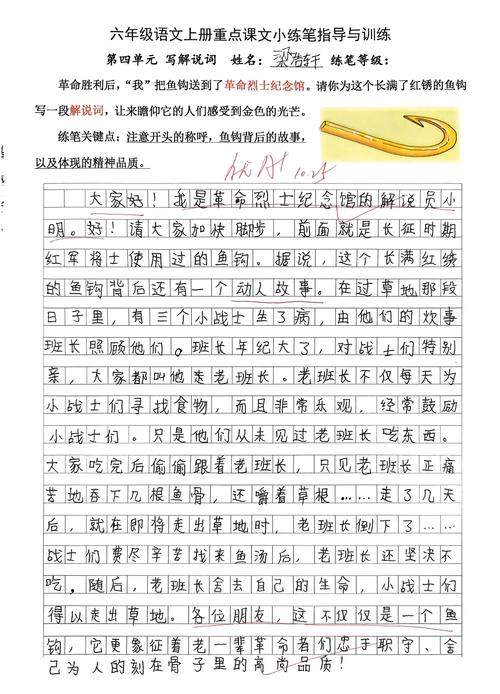 六年级语文上册重点课文小练笔指导与训练
第四单元 写解说词 姓名：梁浩轩 练笔等级：
革命胜利后，“我”把鱼钩送到了革命烈士纪念馆。请你为这个长满了红锈的鱼钩
写一段解说词，让来瞻仰它的人们感受到金色的光芒。
练笔关键点：注意开头的称呼，鱼钩背后的故事，
以及体现的精神品质。
优A+ 10.25
大家好！我是革命烈士纪念馆的解说员小
明。好！请大家加快脚步，前面就是长征时期
红军将士使用过的鱼钩。据说，这个长满红绣
的鱼钩背后还有一个动人故事。在过草地那段
日子里，有三个小战士生了病，由他们的炊事
班长照顾他们。班长年纪大了，对战士们特别
亲，大家都叫他老班长。老班长不仅每天为
小战士们寻找食物，而且非常乐观，经常鼓励
小战士们。只是他们从未见过老班长吃东西。
大家吃完后偷偷跟着老班长，只见老班长正痛
苦地吞下几根鱼骨，还嚼着草根……走了几天
后，就在即将走出草地时，老班长倒下了……
战士们费尽辛苦找来鱼汤后，老班长还坚决不
吃。随后，老班长舍去自己的生命，小战士们
得以走出草地。各位朋友，这不仅仅是一个鱼
钩，它更象征着老一辈革命者们忠于职守、舍
己为人的刻在骨子里的高尚品质！